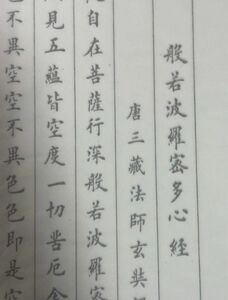 般若波羅密多心經
唐三藏法師玄奘
自在菩薩行深般若波羅密
見五蘊皆空度一切苦厄舍
色不異空空不異色色即是空